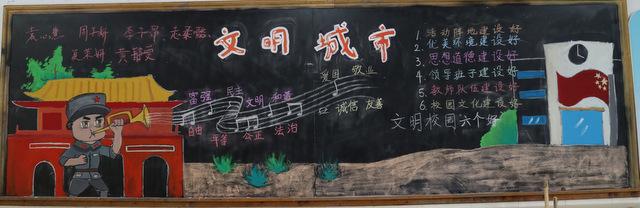 文明城市
富强 民主 文明 和谐
自由 平等 公正 法治
爱国 敬业
诚信 友善
1. 活动阵地建设好
2. 优美环境建设好
3. 思想道德建设好
4. 领导班子建设好
5. 教师队伍建设好
6. 校园文化建设好
文明校园六个好